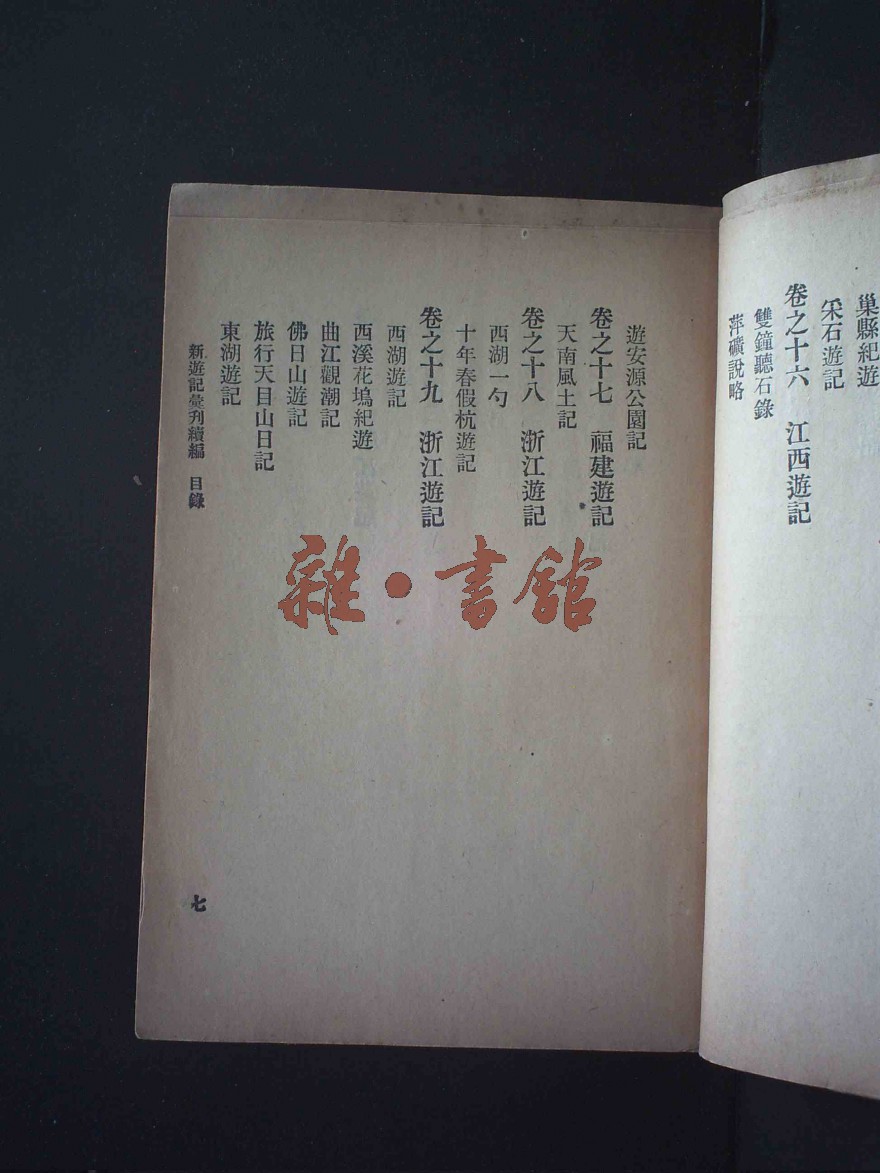 巢縣紀遊
采石遊記
卷之十六 江西遊記
雙鐘聽石錄
萍礦說略
遊安源公園記
卷之十七 福建遊記
天南風土記
卷之十八 浙江遊記
西湖一勺
十年春假杭遊記
卷之十九 浙江遊記
西湖遊記
西溪花塢紀遊
曲江觀潮記
佛日山遊記
旅行天目山日記
東湖遊記
新遊記彙刊續編 目錄
七
雜·書館